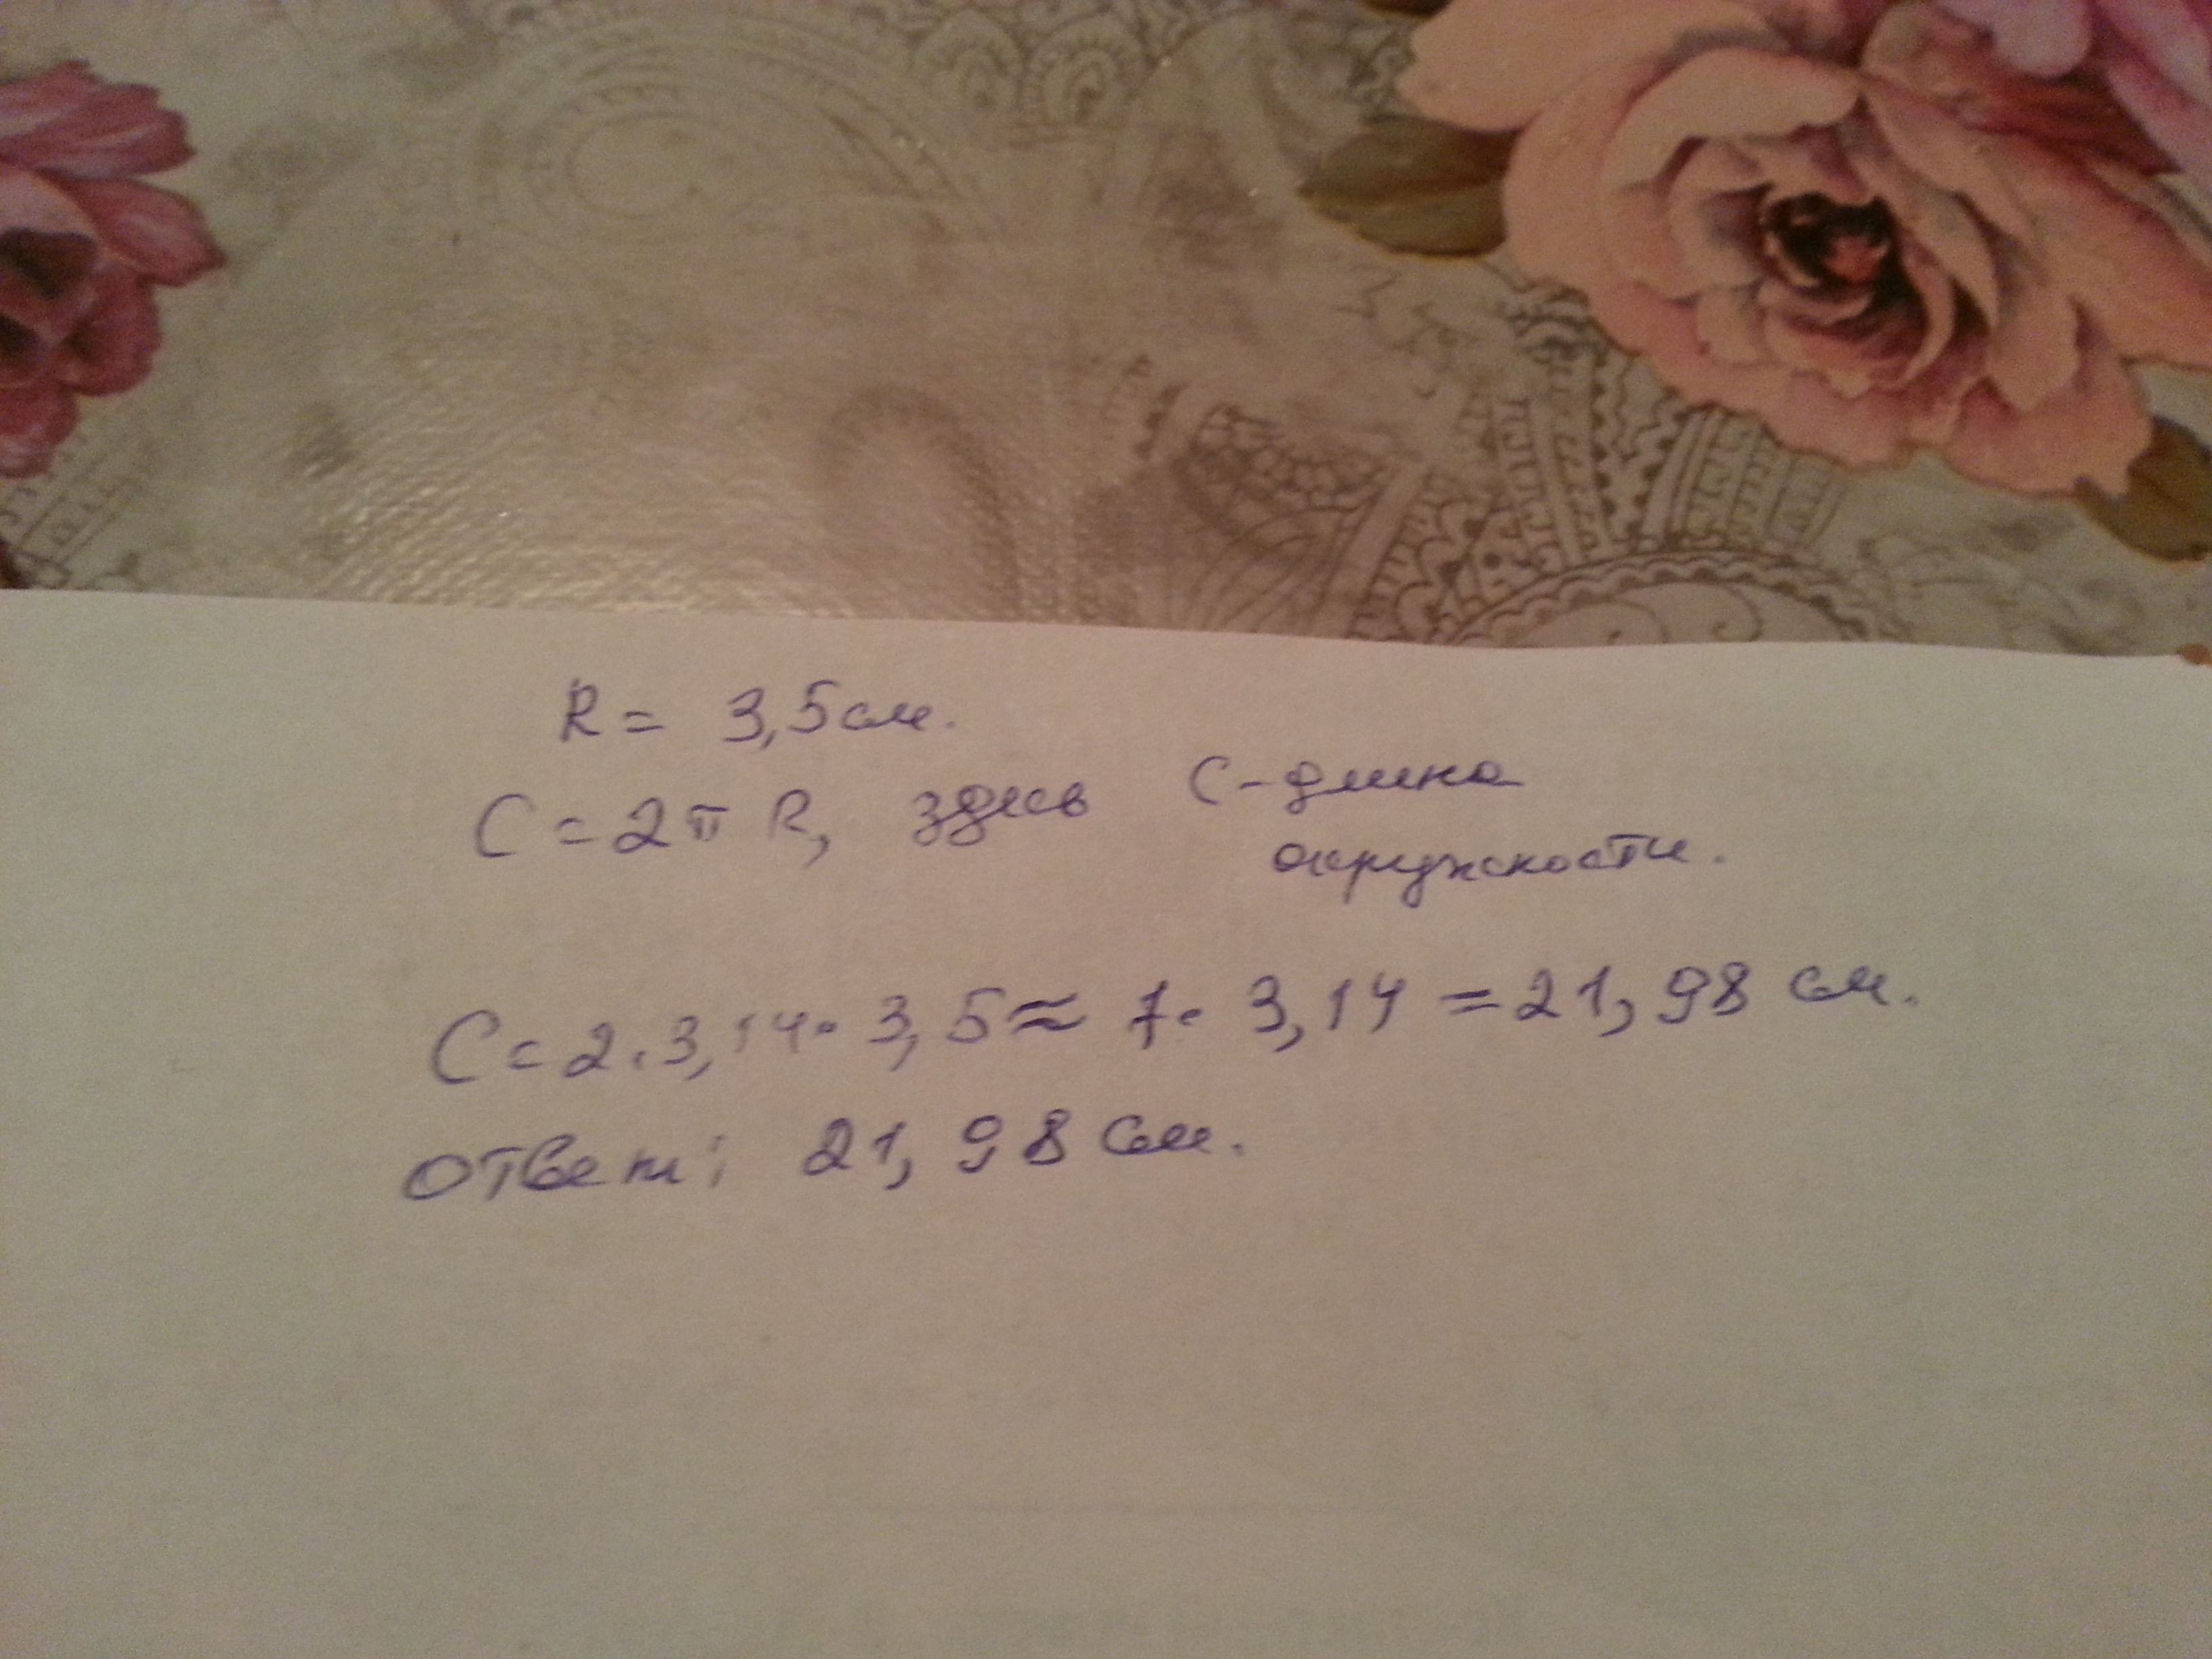 R = 3,5 см.
C = 2π R, здесь C - длина
окружности.
C = 2 · 3,14 · 3,5 ≈ 7 · 3,14 = 21,98 см.
Ответ: 21,98 см.